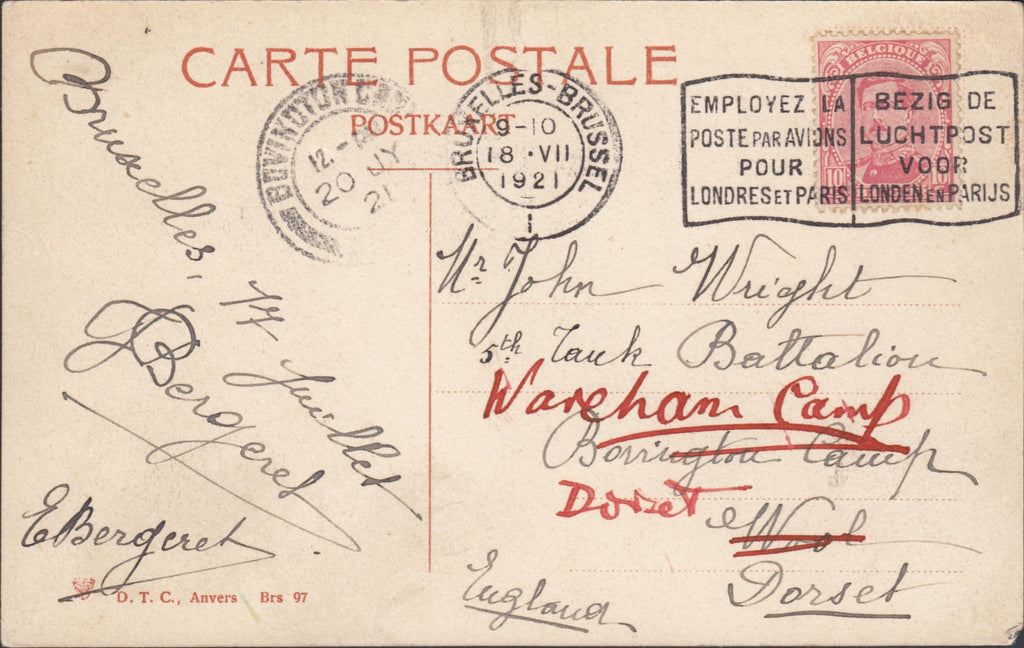 CARTE POSTALE
POSTKAART
BOVINGTON CAMP
12.-
20 JY
21
BRUXELLES-BRUSSEL
9-10
18 ·VII
1921
EMPLOYEZ LA
POSTE PAR AVIONS
POUR
LONDRES ET PARIS
BEZIG DE
LUCHTPOST
VOOR
LONDEN EN PARIJS
BELGIQUE
10 10
Bruxelles, 17 Juillet
JBergeret
EBergeret
Mr John Wright
5th Tank Battalion
Wareham Camp
Bovington Camp
Dorset
Wool
Dorset
England
D. T. C., Anvers Brs 97